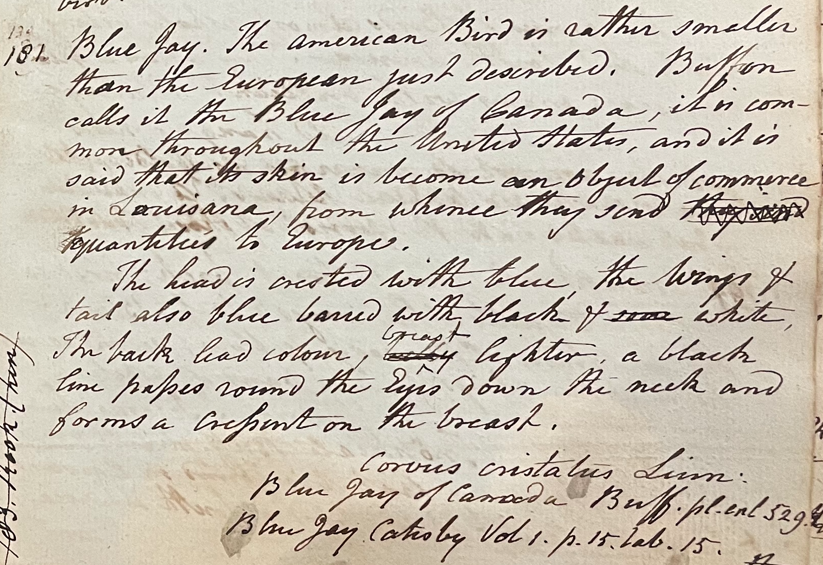 181. Blue Jay. The american Bird is rather smaller
than the European just described. Buffon
calls it the Blue Jay of Canada, it is com-
mon throughout the United States, and it is
said that its skin is become an Object of commerce
in Louisana, from whence they send they send
quantities to Europe.
The head is crested with blue, the Wings &
tail also blue barred with black & some white,
The back lead colour, breast lighter, a black
line passes round the Eyes down the neck and
forms a cressent on the breast.
Corvus cristatus Linn:
Blue Jay of Canada Buff. pl. enl 529.
Blue Jay. Catesby Vol 1. p. 15. tab. 15.